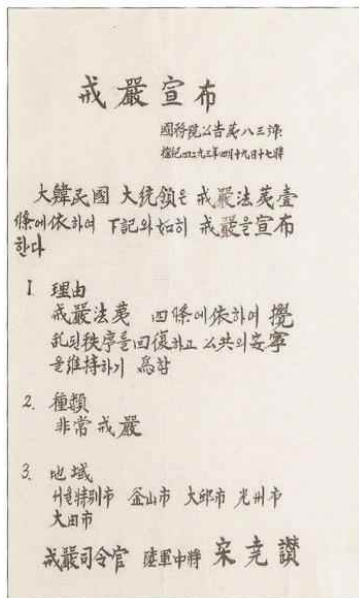 戒嚴宣布
國務院公告第八三號
檀紀四二九三年四月十九日十七時
大韓民國 大統領은 戒嚴法第壹
條에依하여 下記와如히 戒嚴을宣布
한다
1 理由
戒嚴法第 四條에依하여 攪
乱된秩序를回復하고 公共의安寧
을維持하기 爲함
2. 種類
非常戒嚴
3. 地域
서울特別市 釜山市 大邱市 光州市
大田市
戒嚴司令官 陸軍中將 宋堯讚